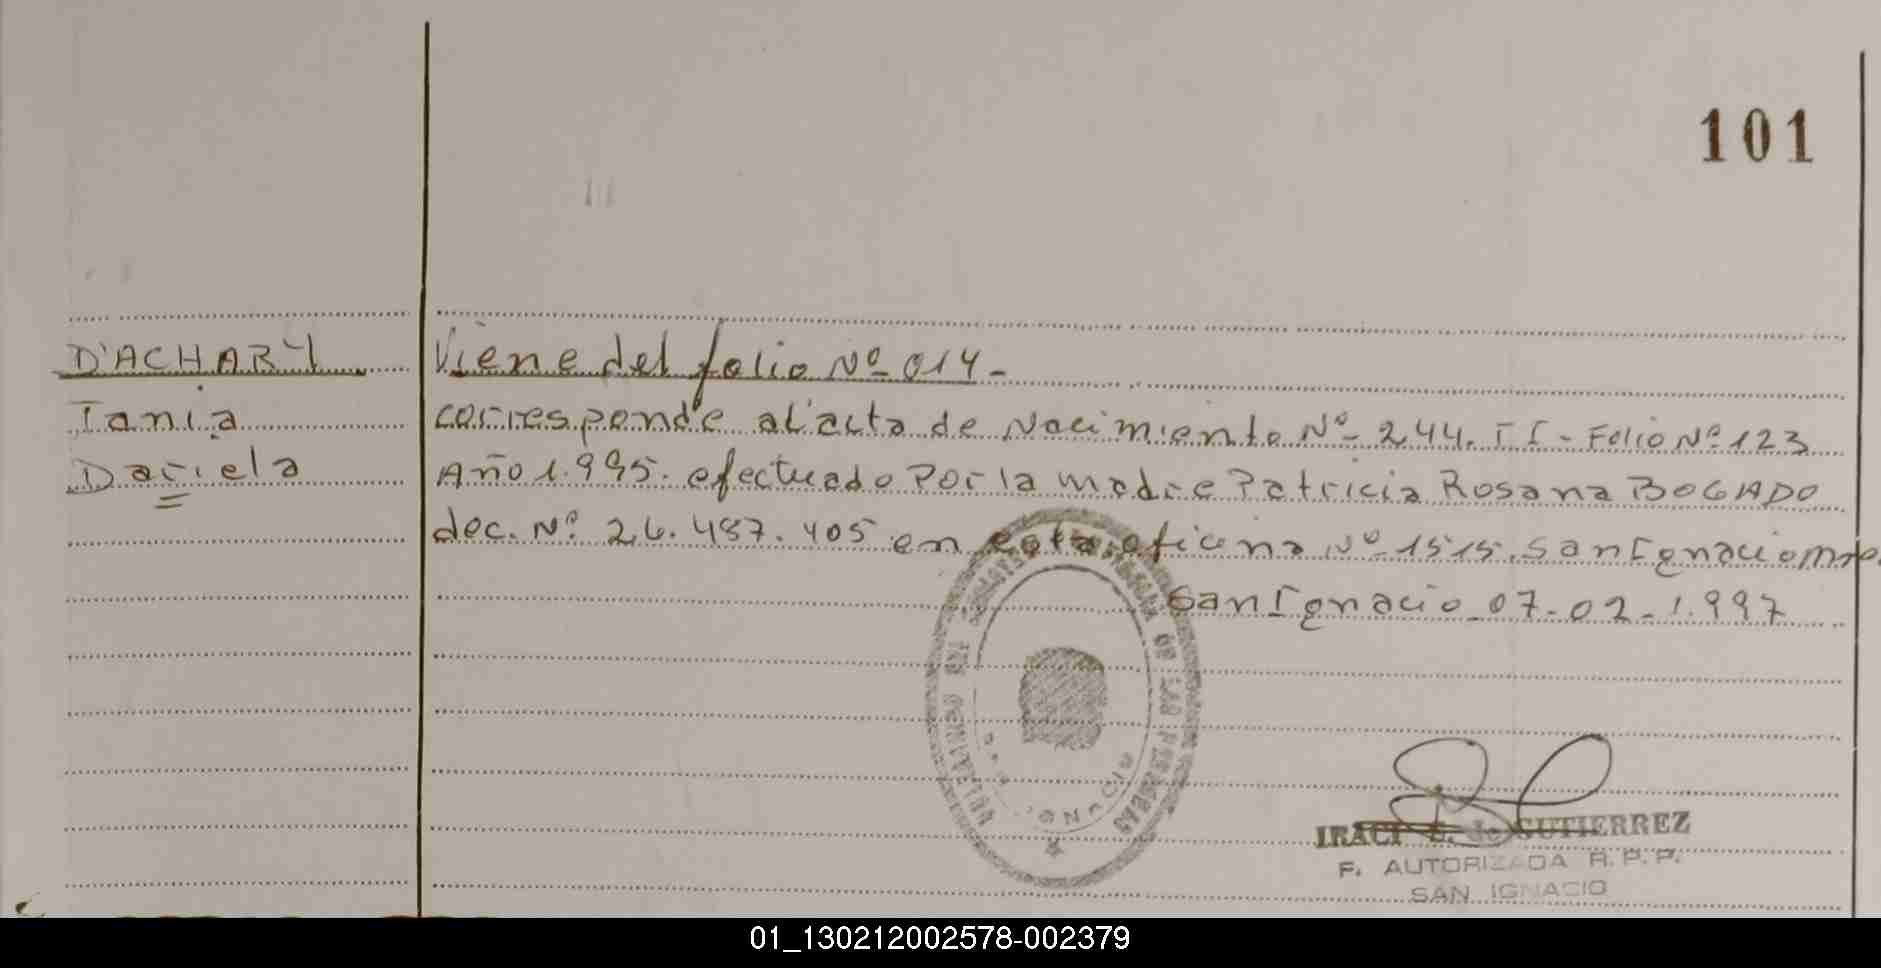 101
D'ACHARY
Tania
Dariela
Viene del folio Nº 014-
corresponde al acta de Nacimiento Nº 244. II - Folio Nº 123
Año 1.995. efectuado Por la madre Patricia Rosana BOGADO
doc. Nº 26.487.405 en esta oficina Nº 1515. San Ignacio Mnes.
San Ignacio 07-02-1.997
DE LAS PERSONAS
IRACI E. de GUTIERREZ
F. AUTORIZADA R.P.P.
SAN IGNACIO
01_130212002578-002379